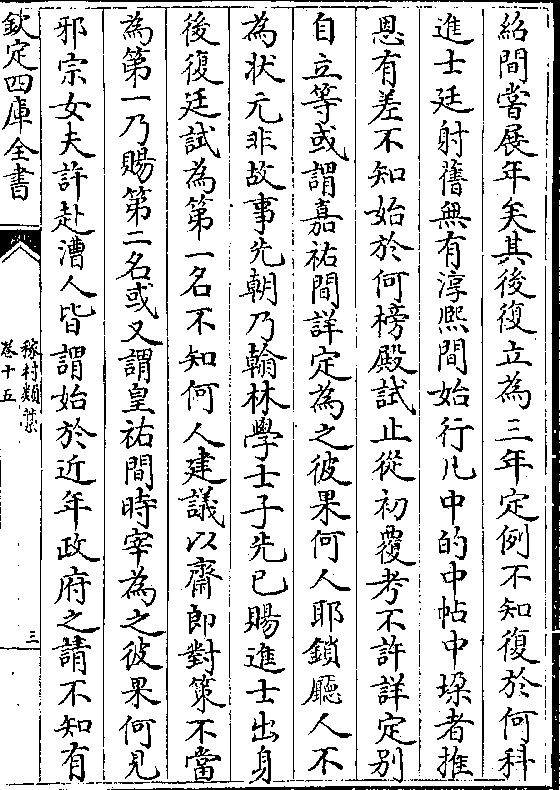 紹間嘗展年矣其後復立為三年定例不知復於何科
進士廷射舊無有淳熈間始行凡中的中帖中垜者推
恩有差不知始於何榜殿試止從初覆考不許詳定别
自立等或謂嘉祐間詳定為之彼果何人耶鎖廳人不
為狀元非故事先朝乃翰林學士子先已賜進士出身
後復廷試為第一名不知何人建議以齋郎對策不當
為第一乃賜第二名或又謂皇祐間時宰為之彼果何見
邪宗女夫許赴漕人皆謂始於近年政府之請不知有
欽定四庫全書
稼村類藁
卷十五
三